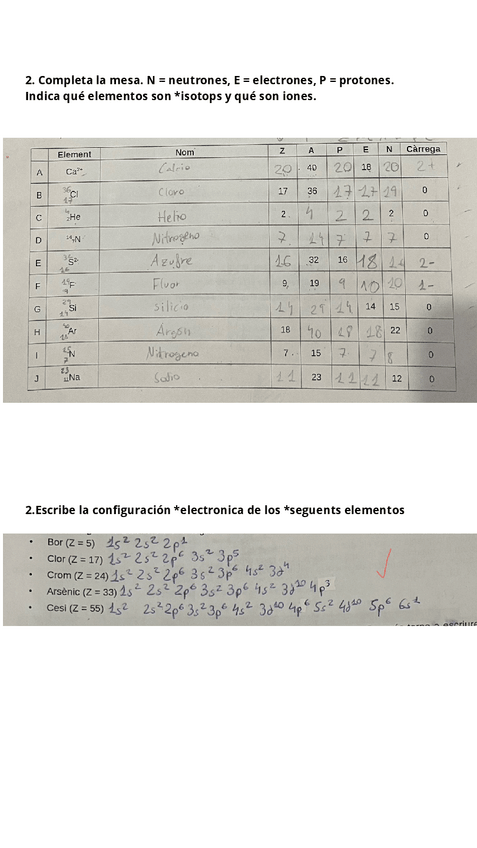 2. Completa la mesa. N = neutrones, E = electrones, P = protones.
Indica qué elementos son *isotops y qué son iones.
Element Nom Z A P E N Càrrega
A Ca²⁺ Calcio 20 40 20 18 20 2+
B ³⁶₁₇Cl Cloro 17 36 17 17 19 0
C ⁴₂He Helio 2 4 2 2 2 0
D ¹⁴N Nitrogeno 7 14 7 7 7 0
E ³²₁₆S²⁻ Azufre 16 32 16 18 2-
F ¹⁹F Fluor 9 19 9 10 10 1-
G ²⁹₁₄Si Silicio 14 29 14 14 15 0
H ⁴⁰₁₈Ar Argon 18 40 18 18 22 0
I ¹⁵₇N Nitrogeno 7 15 7 7 8 0
J ²³₁₁Na Sodio 11 23 11 11 12 0
2.Escribe la configuración *electronica de los *seguents elementos
• Bor (Z = 5) 1s² 2s² 2p¹
• Clor (Z = 17) 1s² 2s² 2p⁶ 3s² 3p⁵
• Crom (Z = 24) 1s² 2s² 2p⁶ 3s² 3p⁶ 4s² 3d⁴
• Arsènic (Z = 33) 1s² 2s² 2p⁶ 3s² 3p⁶ 4s² 3d¹⁰ 4p³
• Cesi (Z = 55) 1s² 2s² 2p⁶ 3s² 3p⁶ 4s² 3d¹⁰ 4p⁶ 5s² 4d¹⁰ 5p⁶ 6s¹